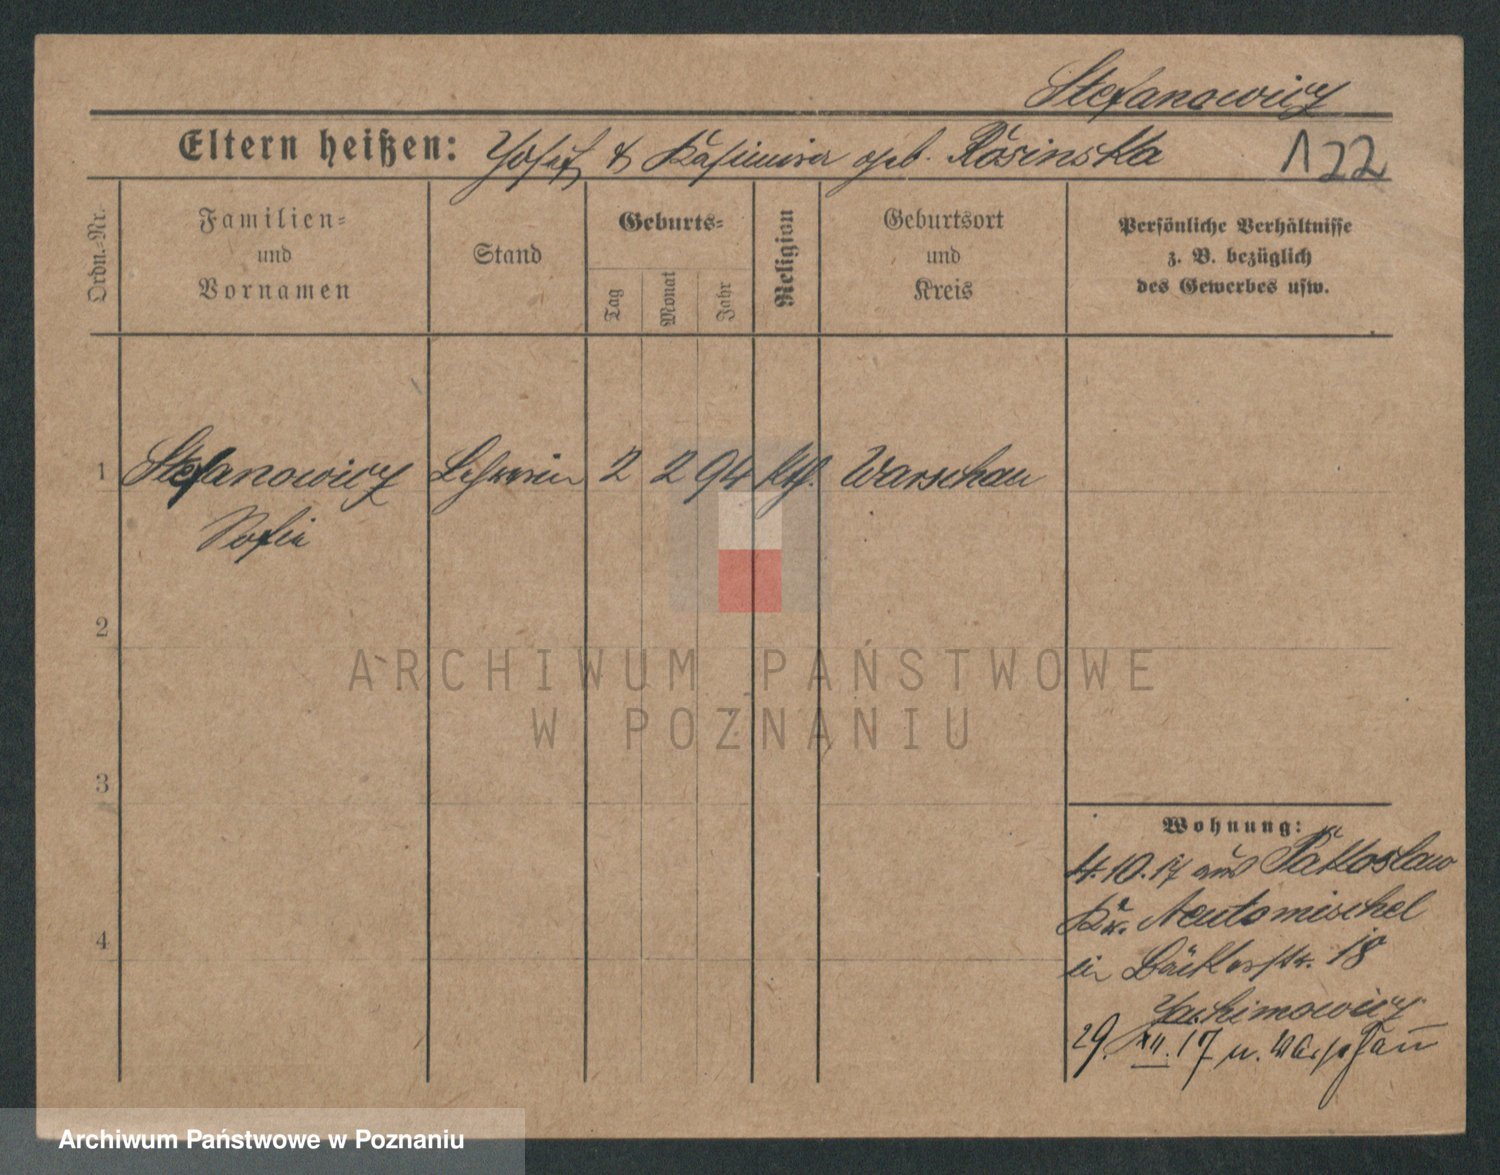 Stefanowicz
Eltern heißen: Josef & Kasimira geb. Rosinska
122
Ordn.-Nr.
Familien-
und
Vornamen
Stand
Geburts-
Tag
Monat
Jahr
Religion
Geburtsort
und
Kreis
Persönliche Verhältnisse
z. B. bezüglich
des Gewerbes usw.
1 Stefanowicz Lehrerin 2 2 94 kth. Warschau
Sofie
2
3
4
ARCHIWUM PAŃSTWOWE
W POZNANIU
Wohnung:
4.10.17 aus
Kr. Neutomischel
in Bäckerstr. 18
Jachimowicz
29. XII. 17 n. Warschau
Archiwum Państwowe w Poznaniu